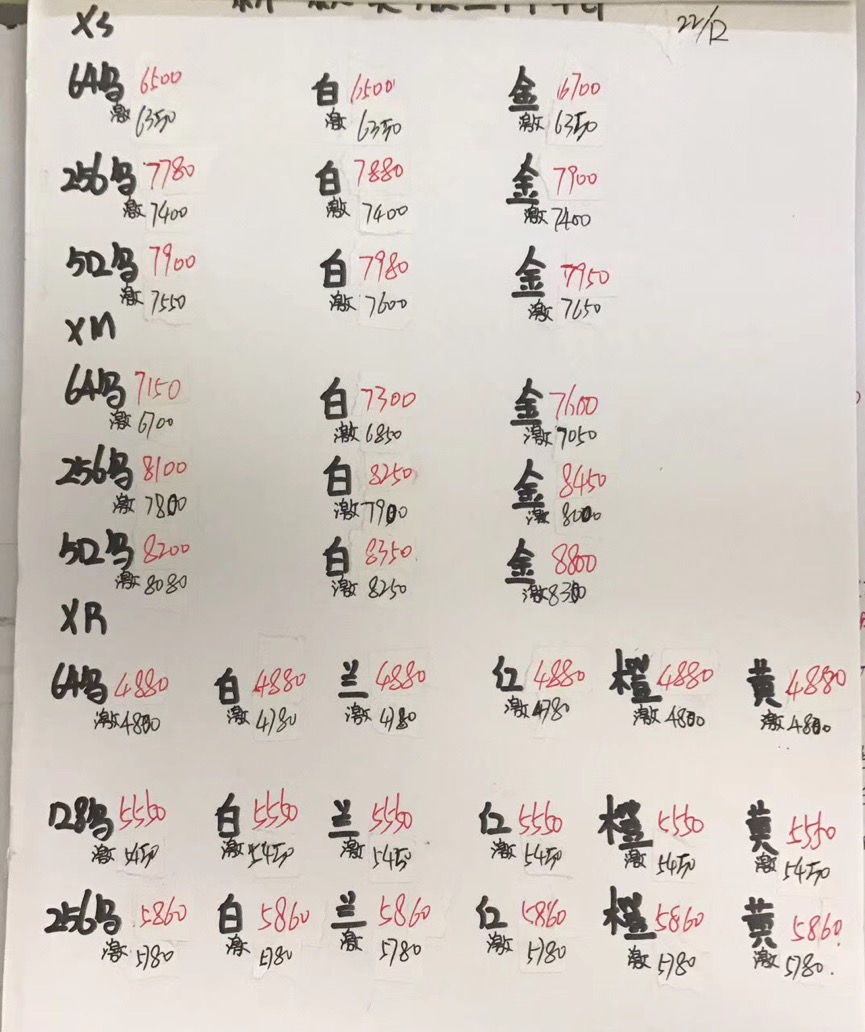 22/12
XS
64乌 6500 白 6500 金 6700
激 6350 激 6350 激 6350
256乌 7780 白 7880 金 7900
激 7400 激 7400 激 7400
512乌 7900 白 7980 金 7950
激 7550 激 7600 激 7650
XM
64乌 7150 白 7300 金 7600
激 6700 激 6850 激 7050
256乌 8100 白 8250 金 8450
激 7800 激 7900 激 8000
512乌 8200 白 8350 金 8800
激 8080 激 8250 激 8300
XR
64乌 4880 白 4880 兰 4880 红 4880 橙 4880 黄 4880
激 4800 激 4780 激 4780 激 4780 激 4800 激 4800
128乌 5550 白 5550 兰 5550 红 5550 橙 5550 黄 5550
激 5450 激 5450 激 5450 激 5450 激 5450 激 5450
256乌 5860 白 5860 兰 5860 红 5860 橙 5860 黄 5860.
激 5780 激 5780 激 5780 激 5780 激 5780 激 5780.